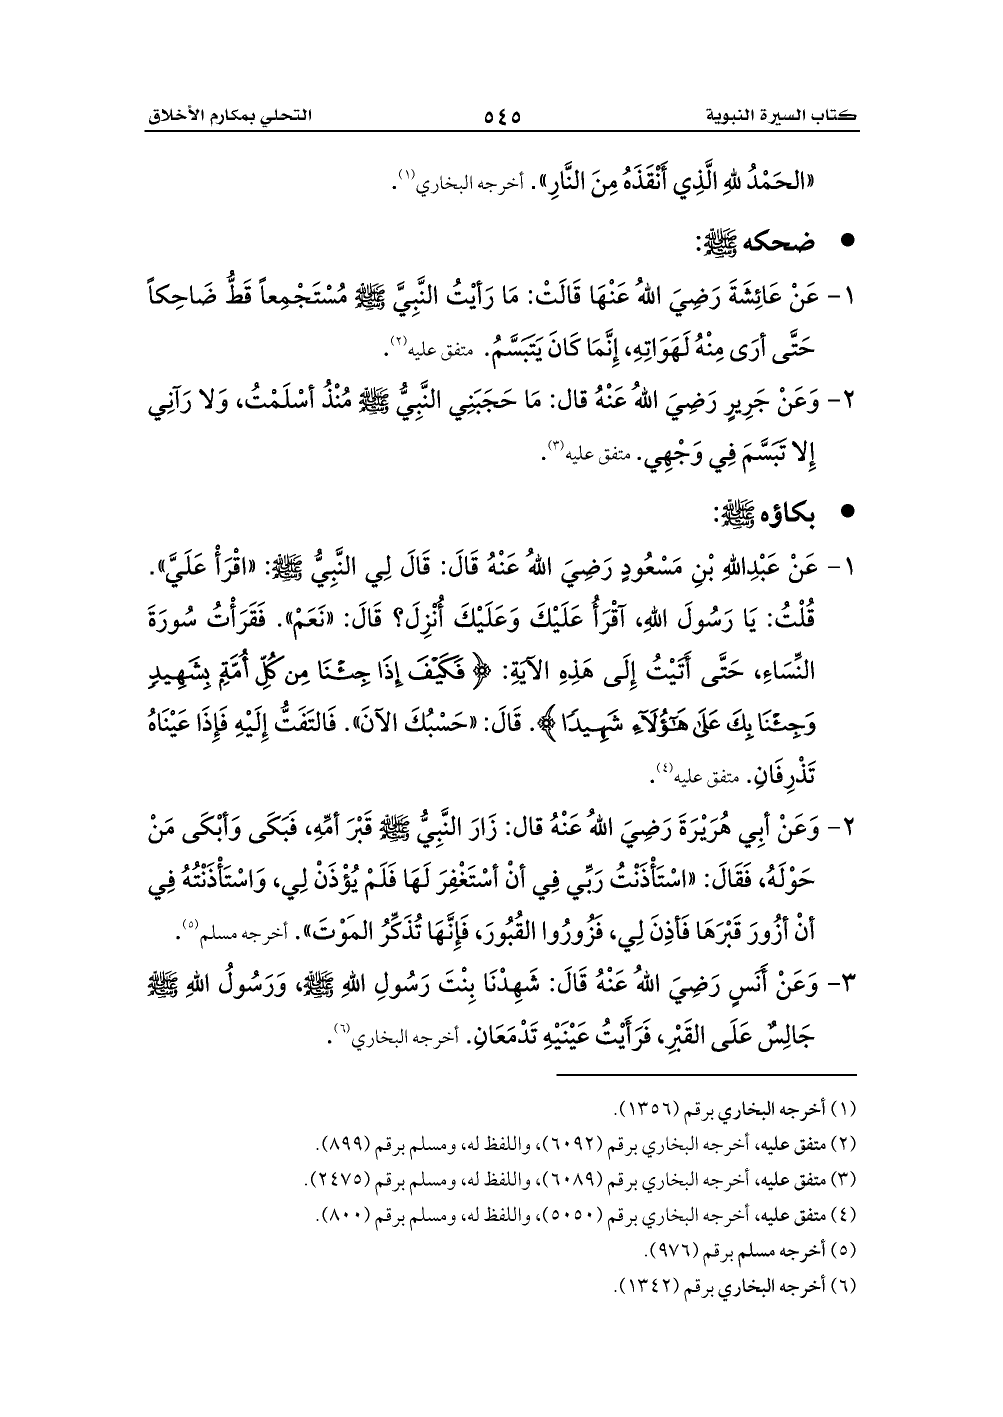 كتاب السيرة النبوية ٥٤٥ التحلي بمكارم الأخلاق
«الحَمْدُ لله الَّذِي أَنْقَذَهُ مِنَ النَّارِ». أخرجه البخاري(١).
● ضحكه ﷺ:
١- عَنْ عَائِشَةَ رَضِيَ اللهُ عَنْهَا قَالَتْ: مَا رَأيْتُ النَّبِيَّ ﷺ مُسْتَجْمِعاً قَطُّ ضَاحِكاً
حَتَّى أرَى مِنْهُ لَهَوَاتِهِ، إنَّمَا كَانَ يَتَبَسَّمُ. متفق عليه(٢).
٢- وَعَنْ جَرِيرٍ رَضِيَ اللهُ عَنْهُ قال: مَا حَجَبَنِي النَّبِيُّ ﷺ مُنْذُ أسْلَمْتُ، وَلا رَآنِي
إلا تَبَسَّمَ فِي وَجْهِي. متفق عليه(٣).
● بكاؤه ﷺ:
١- عَنْ عَبْدِاللهِ بْنِ مَسْعُودٍ رَضِيَ اللهُ عَنْهُ قَالَ: قَالَ لِي النَّبِيُّ ﷺ: «اقْرَأْ عَلَيَّ».
قُلْتُ: يَا رَسُولَ اللهِ، آقْرَأُ عَلَيْكَ وَعَلَيْكَ أُنْزِلَ؟ قَالَ: «نَعَمْ». فَقَرَأْتُ سُورَةَ
النِّسَاءِ، حَتَّى أَتَيْتُ إلَى هَذِهِ الآيَةِ: ﴿فَكَيْفَ إِذَا جِئْنَا مِن كُلِّ أُمَّةٍ بِشَهِيدٍ
وَجِئْنَا بِكَ عَلَىٰ هَٰٓؤُلَآءِ شَهِيدًا﴾. قَالَ: «حَسْبُكَ الآنَ». فَالتَفَتُّ إلَيْهِ فَإذَا عَيْنَاهُ
تَذْرِفَانِ. متفق عليه(٤).
٢- وَعَنْ أبِي هُرَيْرَةَ رَضِيَ اللهُ عَنْهُ قال: زَارَ النَّبِيُّ ﷺ قَبْرَ أمِّهِ، فَبَكَى وَأبْكَى مَنْ
حَوْلَهُ، فَقَالَ: «اسْتَأْذَنْتُ رَبِّي فِي أنْ أسْتَغْفِرَ لَهَا فَلَمْ يُؤْذَنْ لِي، وَاسْتَأْذَنْتُهُ فِي
أنْ أزُورَ قَبْرَهَا فَأذِنَ لِي، فَزُورُوا القُبُورَ، فَإنَّهَا تُذَكِّرُ المَوْتَ». أخرجه مسلم(٥).
٣- وَعَنْ أَنَسٍ رَضِيَ اللهُ عَنْهُ قَالَ: شَهِدْنَا بِنْتَ رَسُولِ اللهِ ﷺ، وَرَسُولُ اللهِ ﷺ
جَالِسٌ عَلَى القَبْرِ، فَرَأَيْتُ عَيْنَيْهِ تَدْمَعَانِ. أخرجه البخاري(٦).
(١) أخرجه البخاري برقم (١٣٥٦).
(٢) متفق عليه، أخرجه البخاري برقم (٦٠٩٢)، واللفظ له، ومسلم برقم (٨٩٩).
(٣) متفق عليه، أخرجه البخاري برقم (٦٠٨٩)، واللفظ له، ومسلم برقم (٢٤٧٥).
(٤) متفق عليه، أخرجه البخاري برقم (٥٠٥٠)، واللفظ له، ومسلم برقم (٨٠٠).
(٥) أخرجه مسلم برقم (٩٧٦).
(٦) أخرجه البخاري برقم (١٣٤٢).